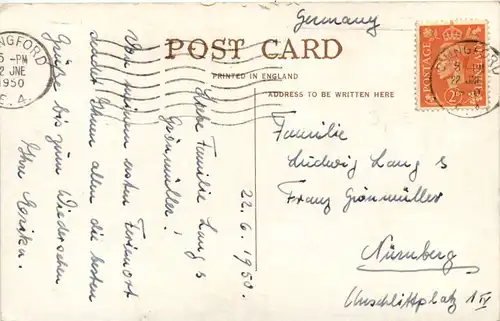 Germany
POST CARD
PRINTED IN ENGLAND
ADDRESS TO BE WRITTEN HERE
NGFORD
5 - PM
2 JNE
1950
E. 4.
POSTAGE
2D
22.6.1950.
Liebe Familie Lang &
Grönmüller!
Von meinem ersten Ferienort
sendet Ihnen allen die besten
Grüße bis zum Wiedersehen
Ihre Erika.
Familie
Ludwig Lang &
Franz Grönmüller
Nürnberg
Unschlittplatz 1 IV